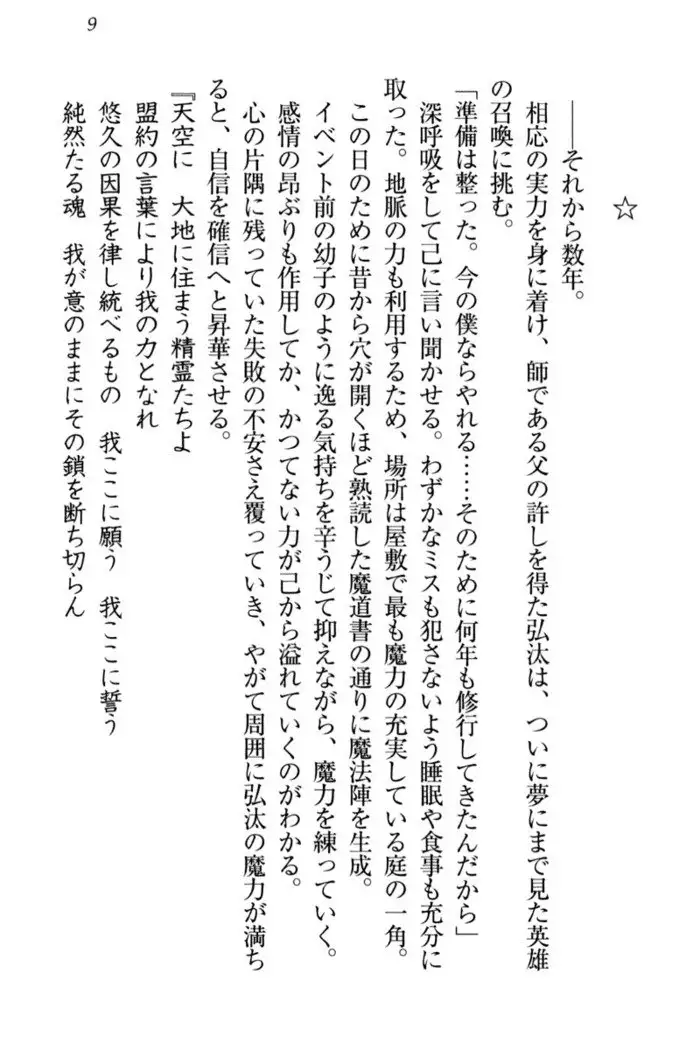 9
☆
――それから数年。
相応の実力を身に着け、師である父の許しを得た弘汰は、ついに夢にまで見た英雄
の召喚に挑む。
「準備は整った。今の僕ならやれる……そのために何年も修行してきたんだから」
深呼吸をして己に言い聞かせる。わずかなミスも犯さないよう睡眠や食事も充分に
取った。地脈の力も利用するため、場所は屋敷で最も魔力の充実している庭の一角。
この日のために昔から穴が開くほど熟読した魔道書の通りに魔法陣を生成。
イベント前の幼子のように逸る気持ちを辛うじて抑えながら、魔力を練っていく。
感情の昂ぶりも作用してか、かつてない力が己から溢れていくのがわかる。
心の片隅に残っていた失敗の不安さえ覆っていき、やがて周囲に弘汰の魔力が満ち
ると、自信を確信へと昇華させる。
『天空に　大地に住まう精霊たちよ
盟約の言葉により我の力となれ
悠久の因果を律し統べるもの　我ここに願う　我ここに誓う
純然たる魂　我が意のままにその鎖を断ち切らん